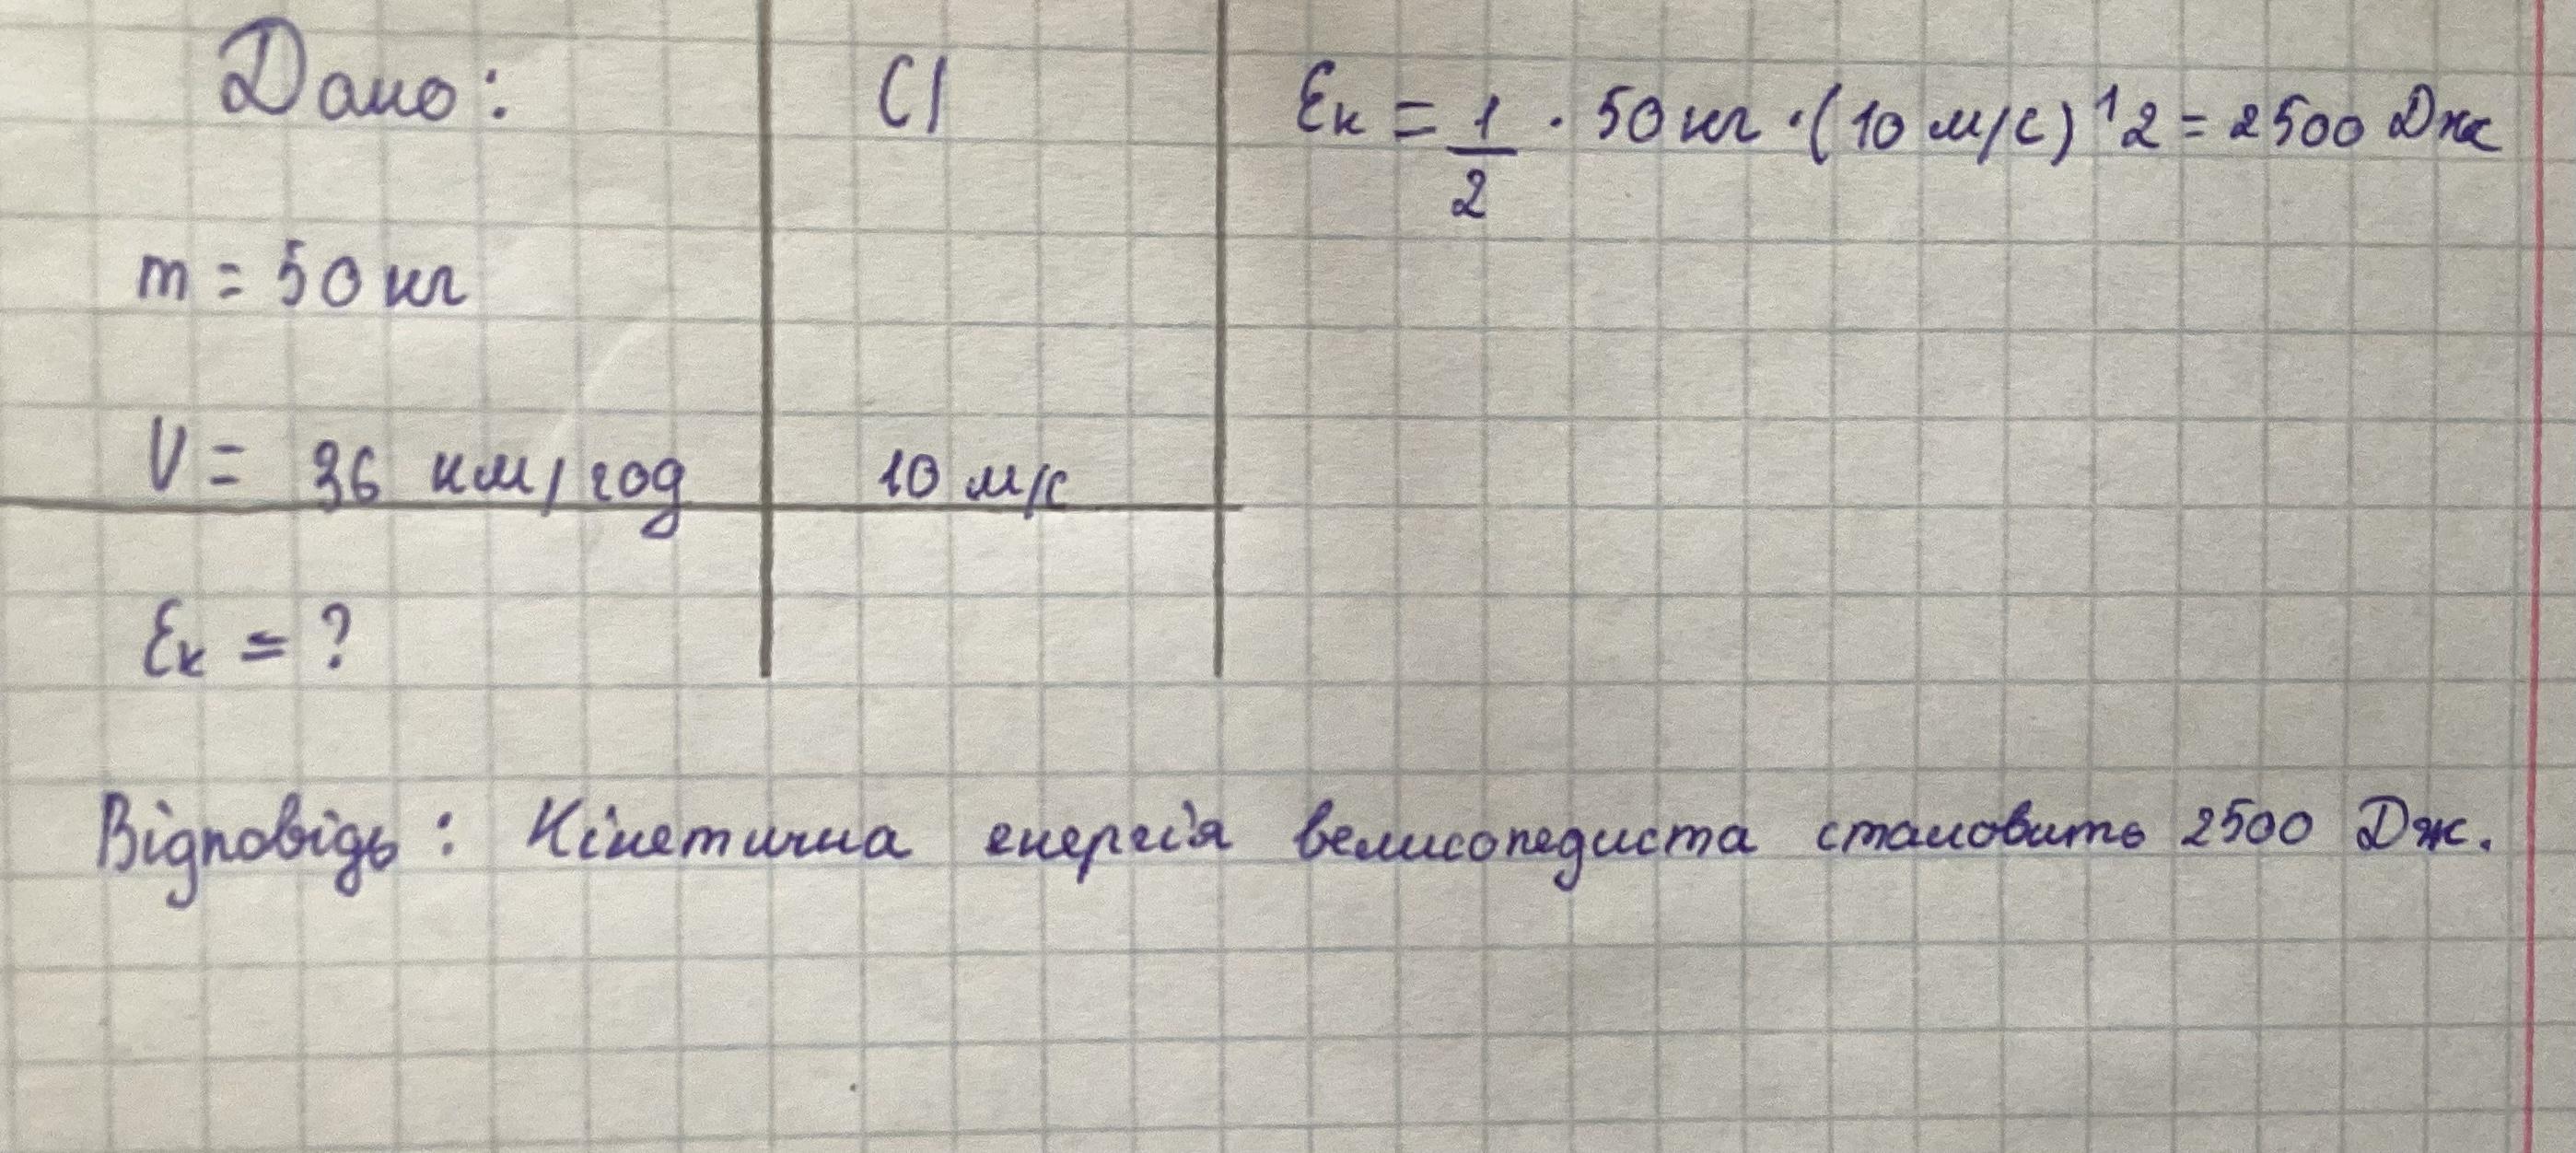 Дано:
СІ
m = 50 кг
V = 36 км/год
10 м/с
Eк = ?
Eк = 1/2 · 50 кг · (10 м/с)^2 = 2500 Дж
Відповідь: Кінетична енергія велисопедиста становить 2500 Дж.